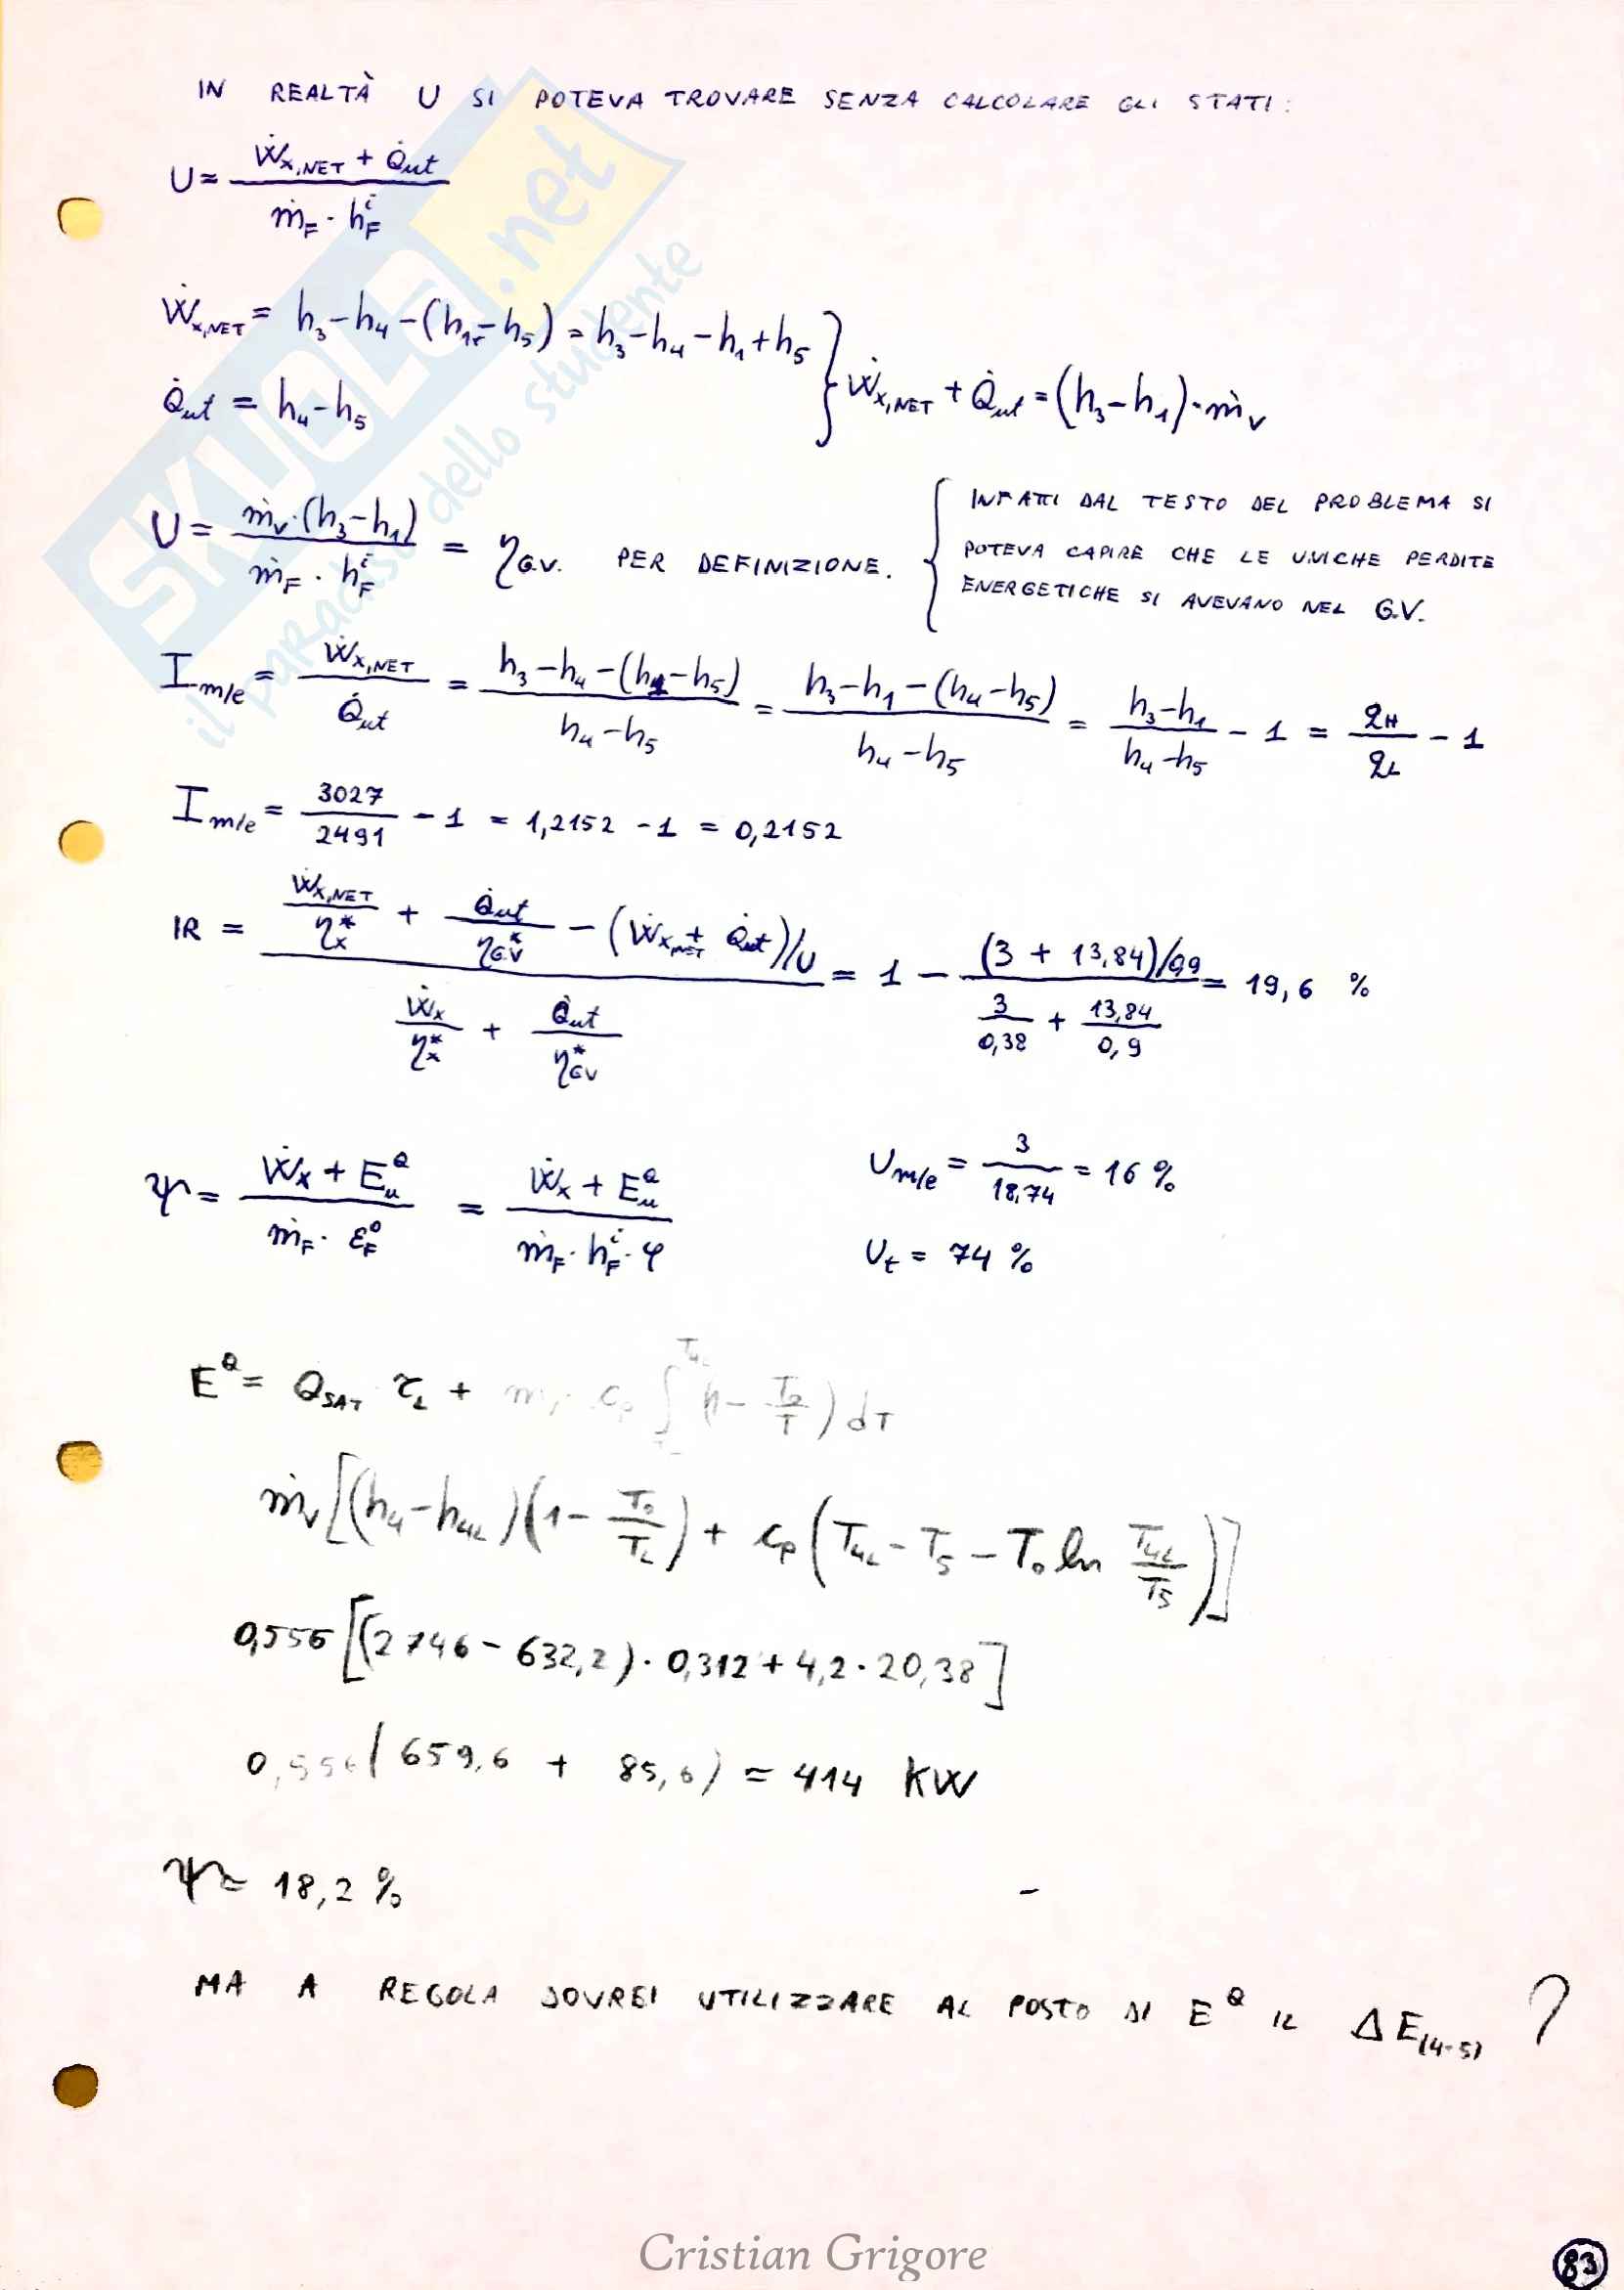 IN REALTÀ U SI POTEVA TROVARE SENZA CALCOLARE GLI STATI:
U = (Ẇx,NET + Q̇ut) / (ṁF · hF^i)
Ẇx,NET = h3 - h4 - (h1 - h5) = h3 - h4 - h1 + h5
Q̇ut = h4 - h5
} Ẇx,NET + Q̇ut = (h3 - h1) · ṁv
U = ṁv · (h3 - h1) / (ṁF · hF^i) = ηG.V. PER DEFINIZIONE.
{ INFATTI DAL TESTO DEL PROBLEMA SI
POTEVA CAPIRE CHE LE UNICHE PERDITE
ENERGETICHE SI AVEVANO NEL G.V.
Im/e = Ẇx,NET / Q̇ut = (h3 - h4 - (h1 - h5)) / (h4 - h5) = (h3 - h1 - (h4 - h5)) / (h4 - h5) = (h3 - h1) / (h4 - h5) - 1 = qH / qL - 1
Im/e = 3027 / 2491 - 1 = 1,2152 - 1 = 0,2152
IR = (Ẇx,NET / ηx* + Q̇ut / ηGV* - (Ẇx,NET + Q̇ut)/U) / (Ẇx / ηx* + Q̇ut / ηGV*) = 1 - ((3 + 13,84)/0,9) / (3 / 0,38 + 13,84 / 0,9) = 19,6 %
ψ = (Ẇx + Eu^Q) / (ṁF · εF^0) = (Ẇx + Eu^Q) / (ṁF · hF^i · φ)
Um/e = 3 / 18,74 = 16 %
Ut = 74 %
E^Q = QSAT τL + ṁv cp ∫ (1 - T0/T) dT
ṁv [(h4 - h4L)(1 - T0/TL) + cp (T4L - T5 - T0 ln T4L/T5)]
0,556 [(2746 - 632,2) · 0,312 + 4,2 · 20,38]
0,556 (659,6 + 85,6) = 414 KW
ψ = 18,2 %
MA A REGOLA DOVREI UTILIZZARE AL POSTO DI E^Q IL ΔE(4-5) ?
SKUOLA.net
il paradiso dello studente
Cristian Grigore
83